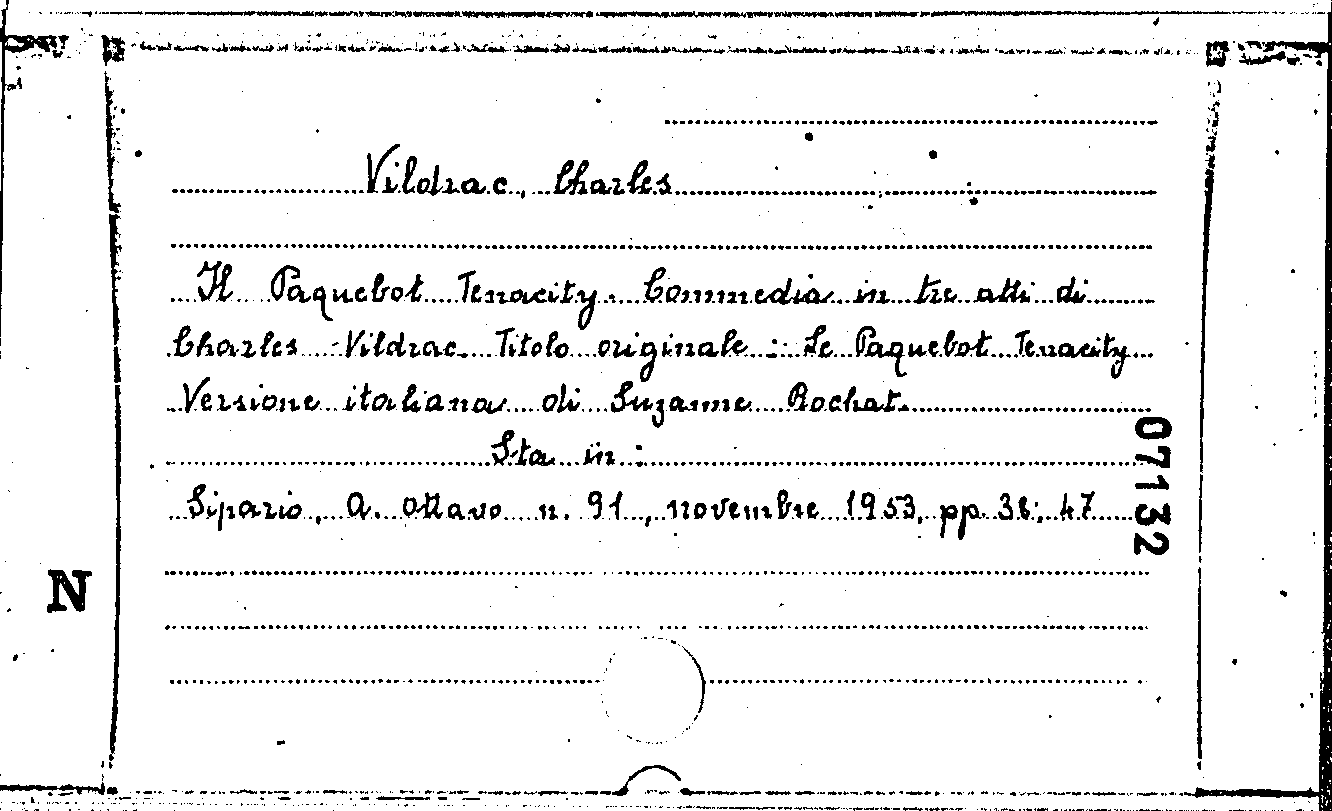 Vildrac, Charles
Il Paquebot Tenacity. Commedia in tre atti di
Charles Vildrac. Titolo originale: Le Paquebot Tenacity
Versione italiana di Suzanne Rochat.
Sta in:
Sipario, A. ottavo n. 91, novembre 1953, pp. 38; 47
07132
N